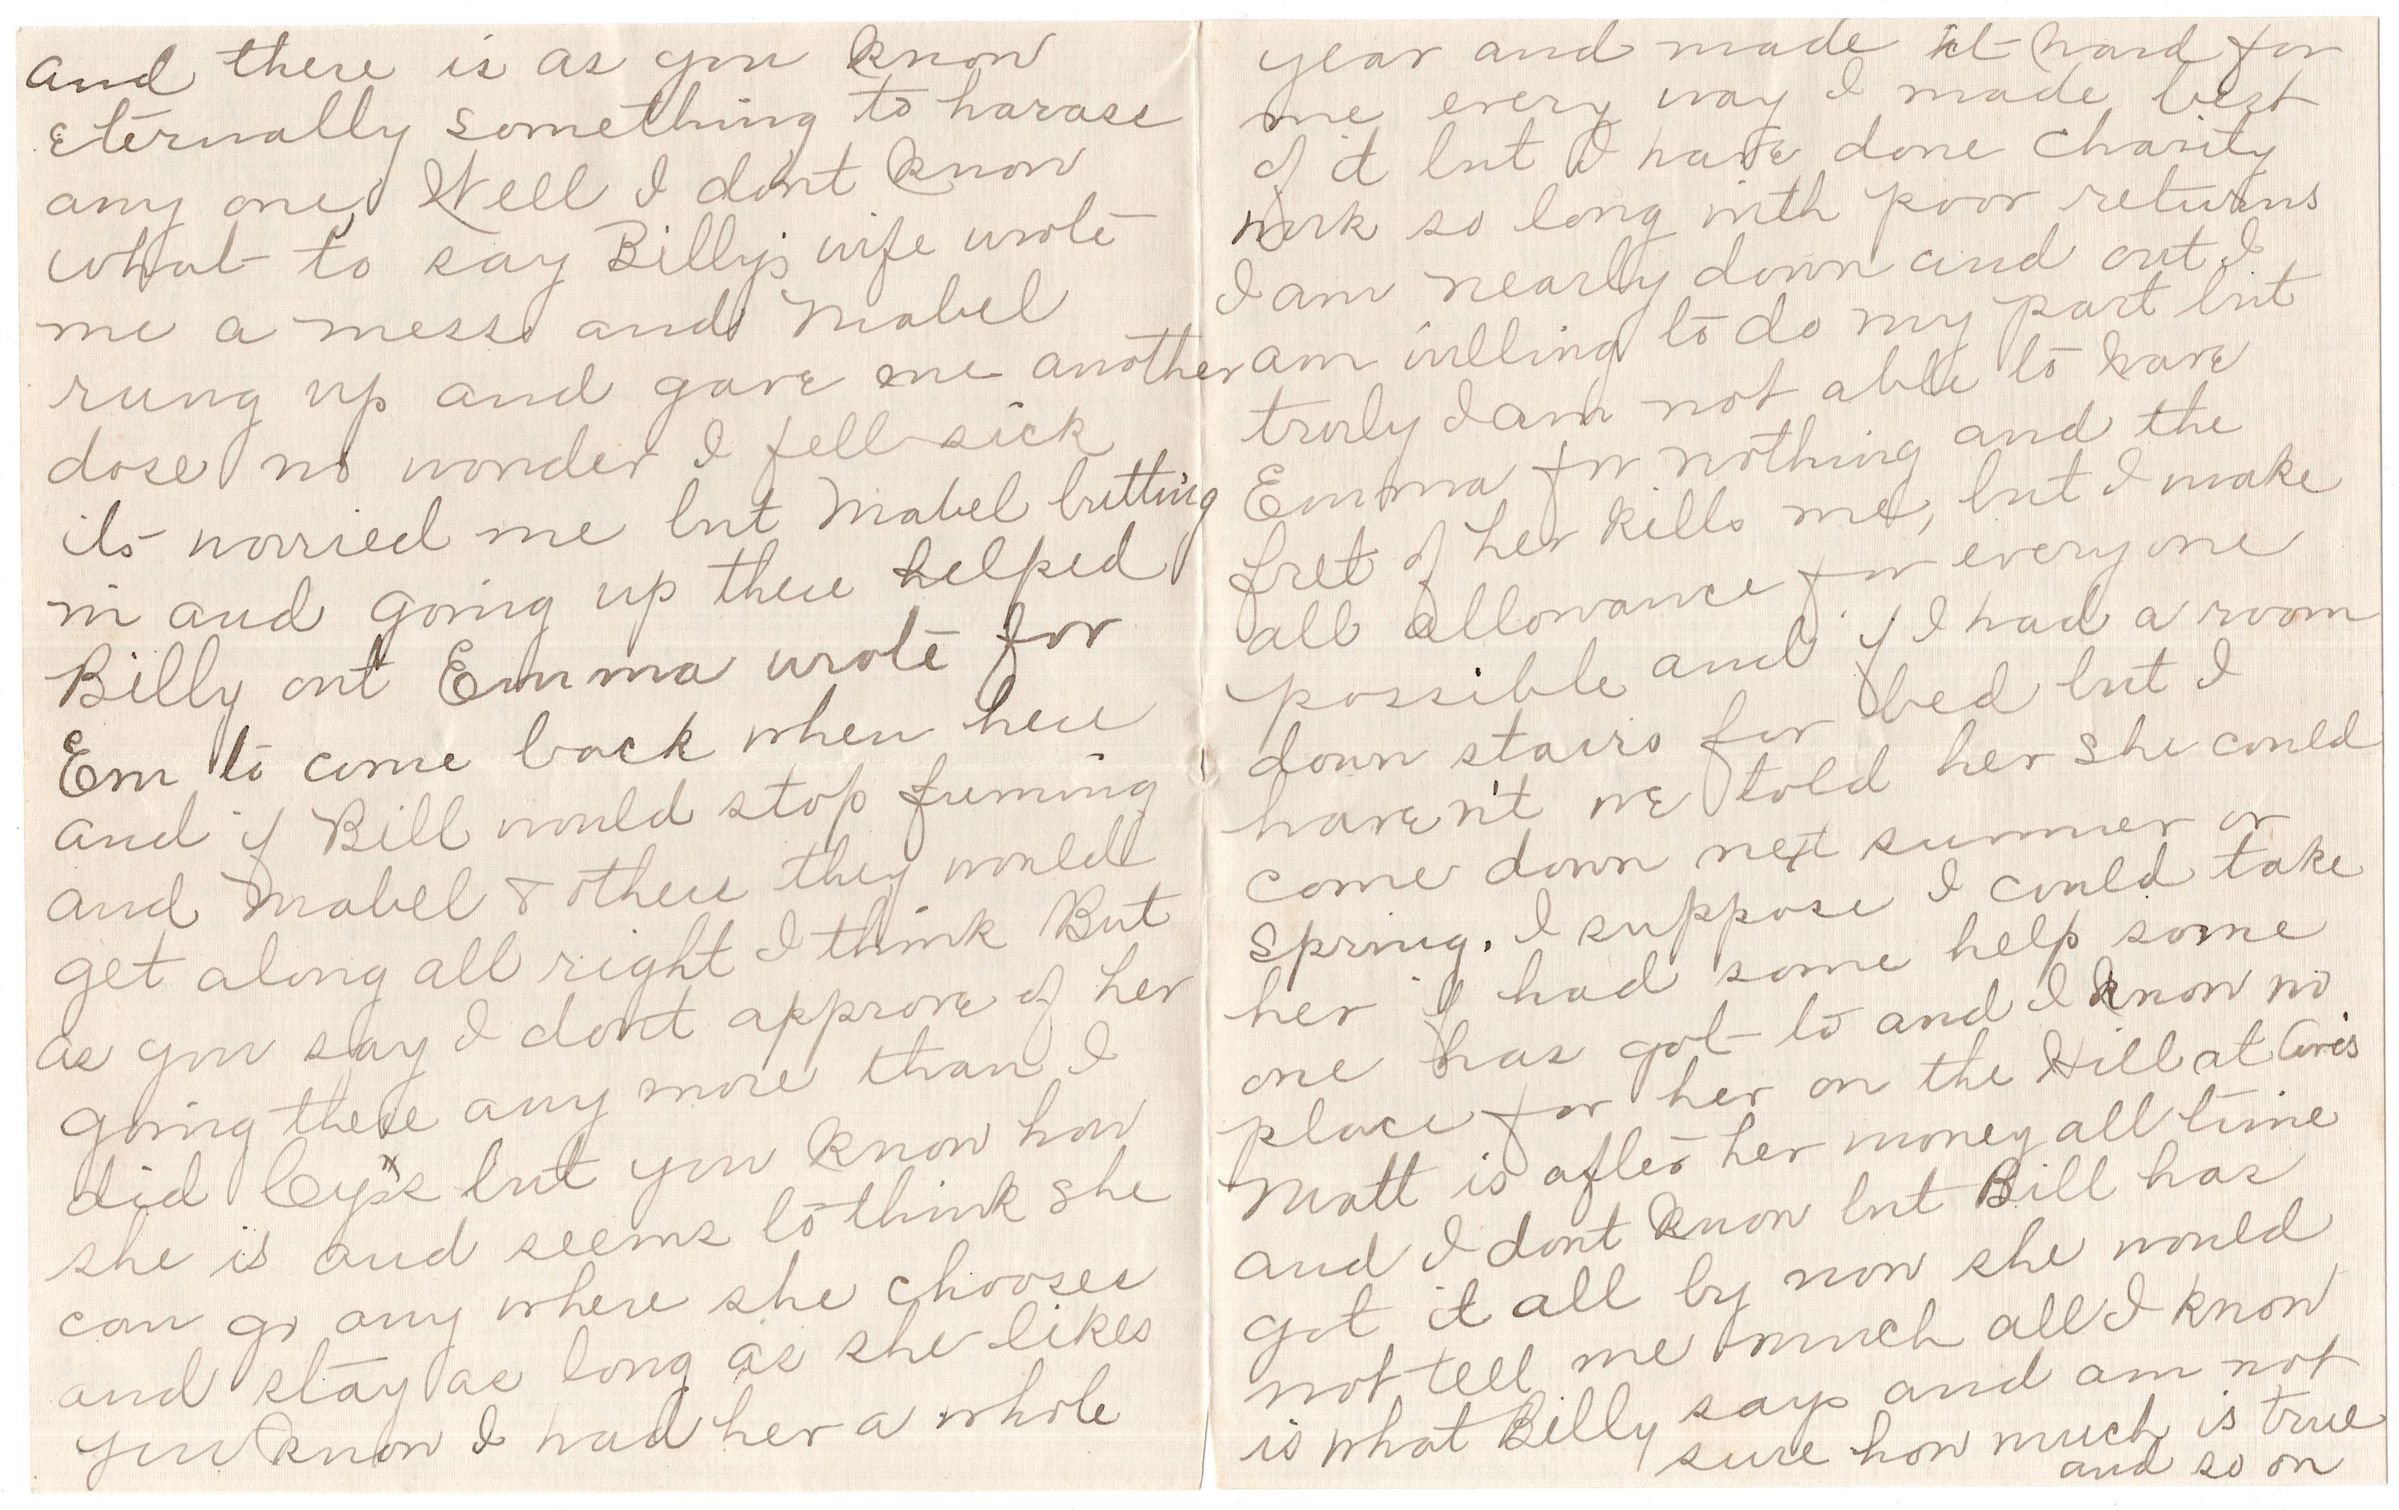 and there is as you know
eternally something to harase
any one Well I dont know
what to say Billys wife wrote
me a mess and Mabel
rung up and gave me another
dose no wonder I fell sick
its worried me but Mabel butting
in and going up there helped
Billy out Emma wrote for
Em to come back when here
and if Bill would stop fuming
and Mabel & othere they would
get along all right I think But
as you say I dont approve of her
going there any more than I
did Cys but you know how
she is and seems to think she
can go any where she chooses
and stay as long as she likes
you know I had her a whole
year and made it hard for
me every way I made best
of it but I have done charity
work so long with poor returns
I am nearly down and out I
am willing to do my part but
truly I am not able to have
Emma for nothing and the
fret of her kills me, but I make
all allowance for everyone
possible and if I had a room
down stairs for bed but I
haven't we told her she could
come down next summer or
spring. I suppose I could take
her if had some help some
one has got to and I know no
place for her on the Hill at
Matt is after her money all time
and I dont know but Bill has
got it all by now she would
not tell me much all I know
is what Billy says and am not
sure how much is true
and so on